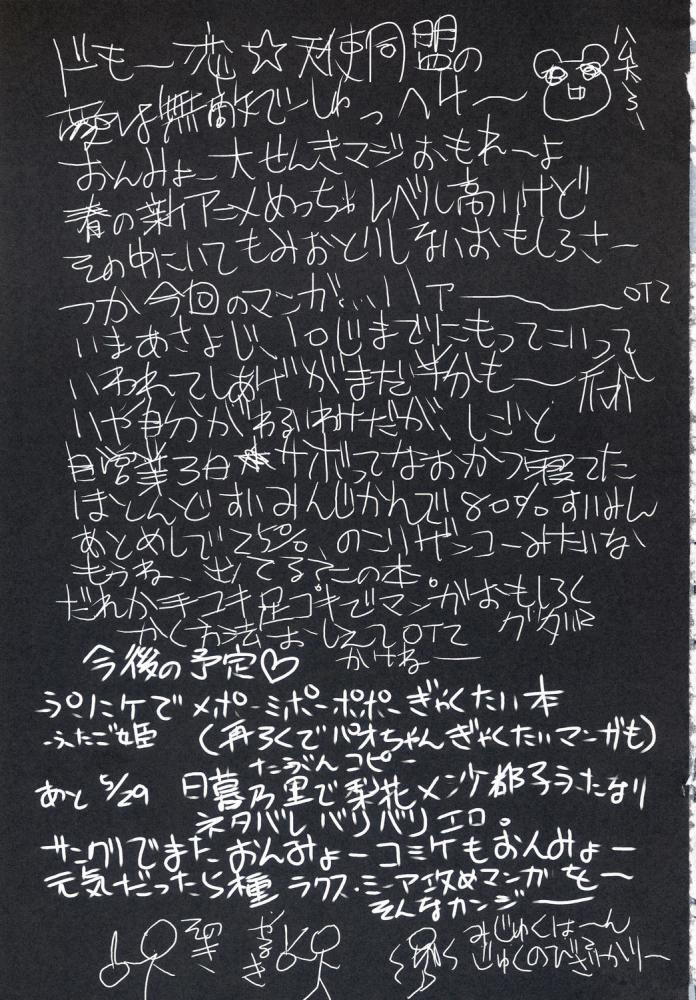 ドもー恋☆天使同盟の
愛は無敵でーしゅっ へけー
おんみょー大せんきマジおもれーよ
春の新アニメめっちゃレベル高いけど
その中にいてもみおとりしないおもしろさー
つか今回のマンガ…ハァ―――OTZ
いまあさ 10じまでにもってこいって
いわれてしあげがまだ半分も――
いや自分がわるいわけだが、しごと
自営業3日 サボってなおかつ寝てた
ほとんどすいみんじかんで80%すいみん
あとめしで25% のこりザンコーみたいな
もうね、出てる?この本。
だれか手コキ足コキでマンガおもしろく
かく方法おしえてOTZ
かけねー
今後の予定♡
ぷにケでメポーミポーポポーぎゃくたい本
ふたご姫 (再ろくでパオちゃんぎゃくたいマンガも)
たぶんコピー
あと5/29 日暮乃里で梨花メンケ都子うたなり
ネタバレバリバリエロ。
サンクリでまたおんみょーコミケもおんみょー
元気だったら種 ラクス・ミーア攻めマンガをー
そんなカンジ――
やるき
みじゅくはーん
じゅくのびざかりー